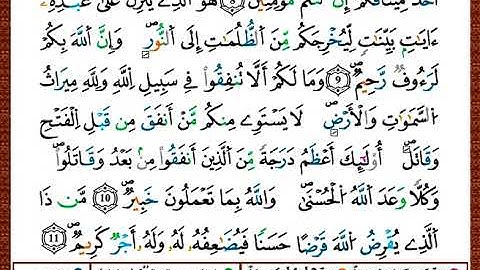 أَخَذَ مِيثَاقَكُمْ إِن كُنتُم مُّومِنِينَ ۝8 هُوَ الَّذِے يُنَزِّلُ عَلَىٰ عَبْدِهِۦ
ءَايَٰتٍ بَيِّنَٰتٍ لِّيُخْرِجَكُم مِّنَ الظُّلُمَاتِ إِلَى النُّورِ وَإِنَّ اللَّهَ بِكُمْ
لَرَءُوفٌ رَّحِيمٌ ۝9 وَمَا لَكُمْ أَلَّا تُنفِقُوا۟ فِے سَبِيلِ اللَّهِ وَلِلَّهِ مِيرَاثُ
السَّمَٰوَٰتِ وَالْأَرْضِ لَا يَسْتَوِے مِنكُم مَّنْ أَنفَقَ مِن قَبْلِ الْفَتْحِ
وَقَاتَلَ أُو۟لَٰٓئِكَ أَعْظَمُ دَرَجَةً مِّنَ الَّذِينَ أَنفَقُوا۟ مِنۢ بَعْدُ وَقَاتَلُوا۟
وَكُلًّا وَعَدَ اللَّهُ الْحُسْنَىٰ وَاللَّهُ بِمَا تَعْمَلُونَ خَبِيرٌ ۝10 مَّن ذَا
الَّذِے يُقْرِضُ اللَّهَ قَرْضًا حَسَنًا فَيُضَٰعِفُهُۥ لَهُۥ وَلَهُۥٓ أَجْرٌ كَرِيمٌ ۝11